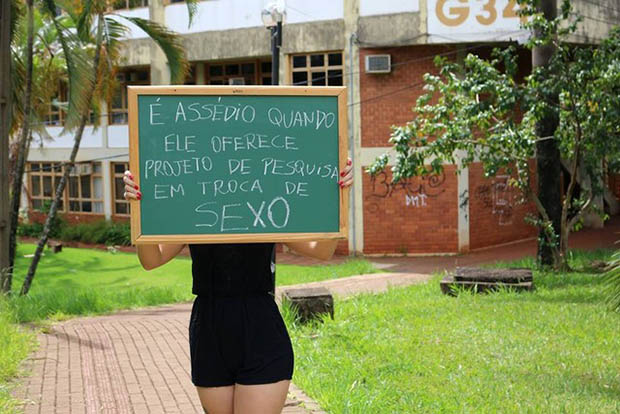 G34
É ASSÉDIO QUANDO
ELE OFERECE
PROJETO DE PESQUISA
EM TROCA DE
SEXO
DMT